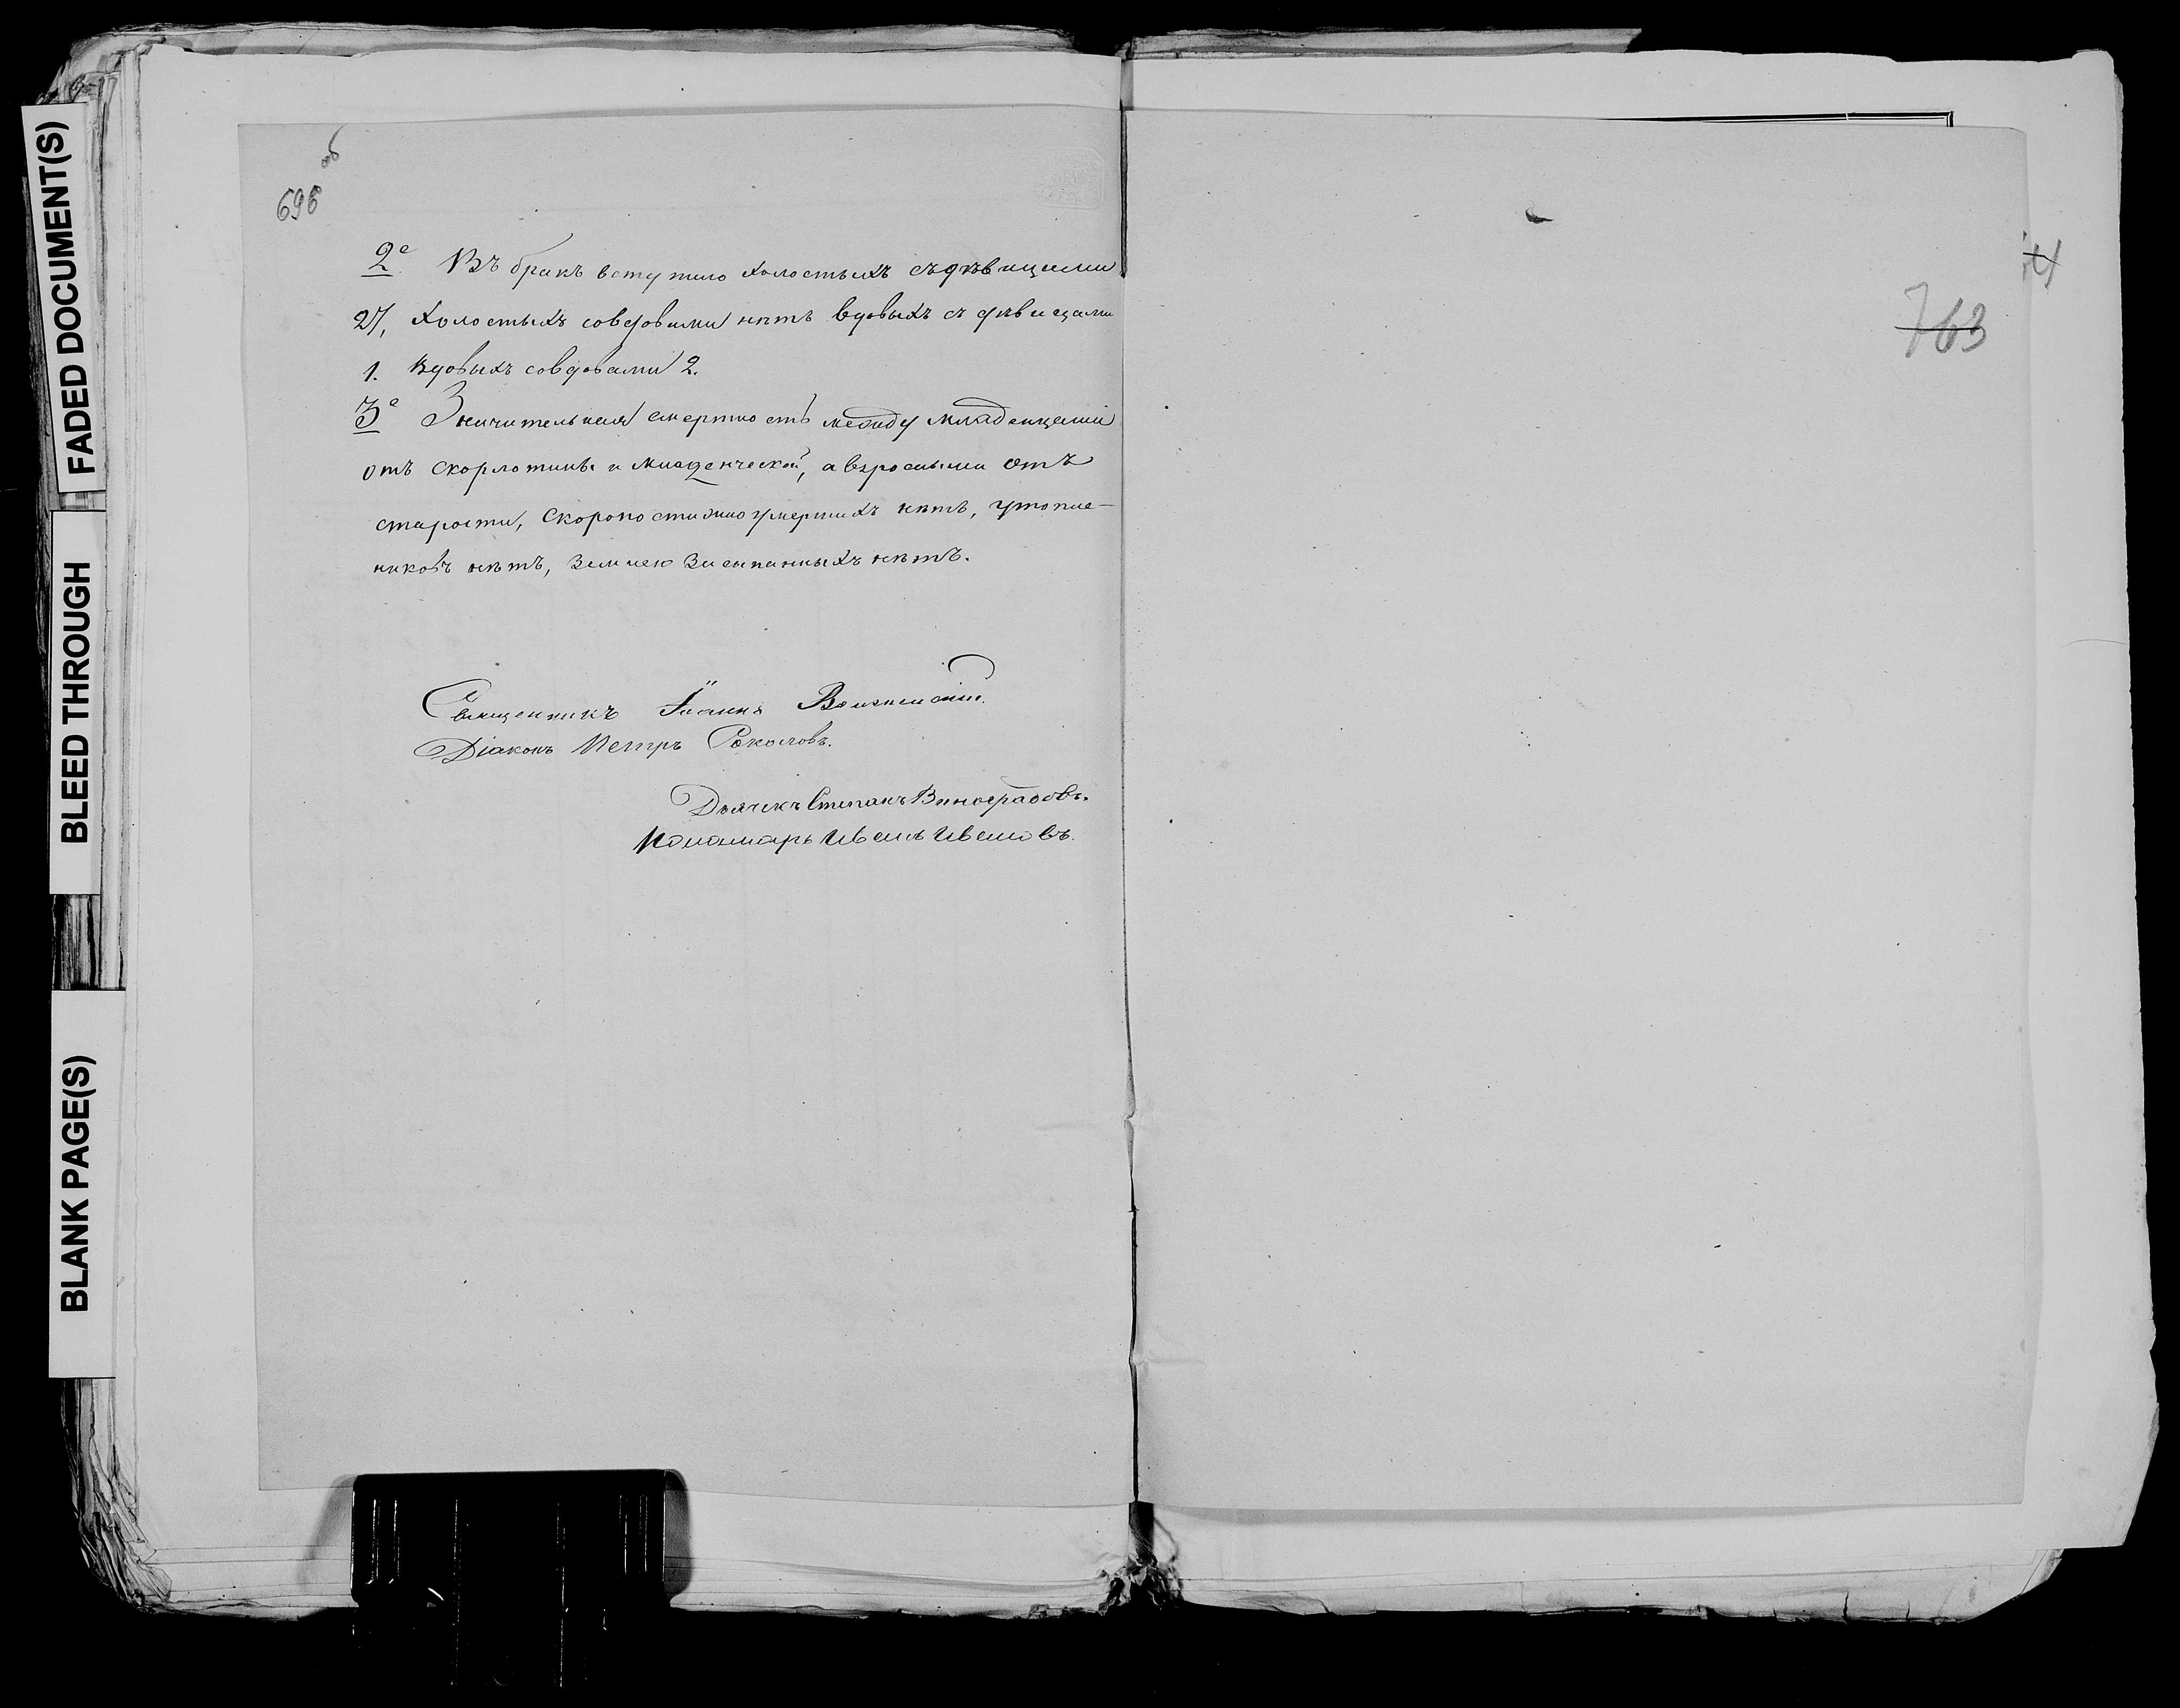 FADED DOCUMENT(S)
BLEED THROUGH
BLANK PAGE(S)
об
696
2е Въ бракъ вступило холостыхъ съ дѣвицами
27, холостыхъ со вдовами нѣтъ вдовыхъ съ дѣвицами
1. вдовыхъ со вдовами 2.
3е Значительная смертность между младенцами
отъ скорлотины и младенческой, а взрослыми отъ
старости, скоропостижно умершихъ нѣтъ, утопле-
никовъ нѣтъ, землею засыпанныхъ нѣтъ.
Священникъ Іоаннъ
Діаконъ Петръ Соколовъ.
Дьячекъ Степанъ Виноградовъ.
Пономарь Иванъ Ивановъ.
763